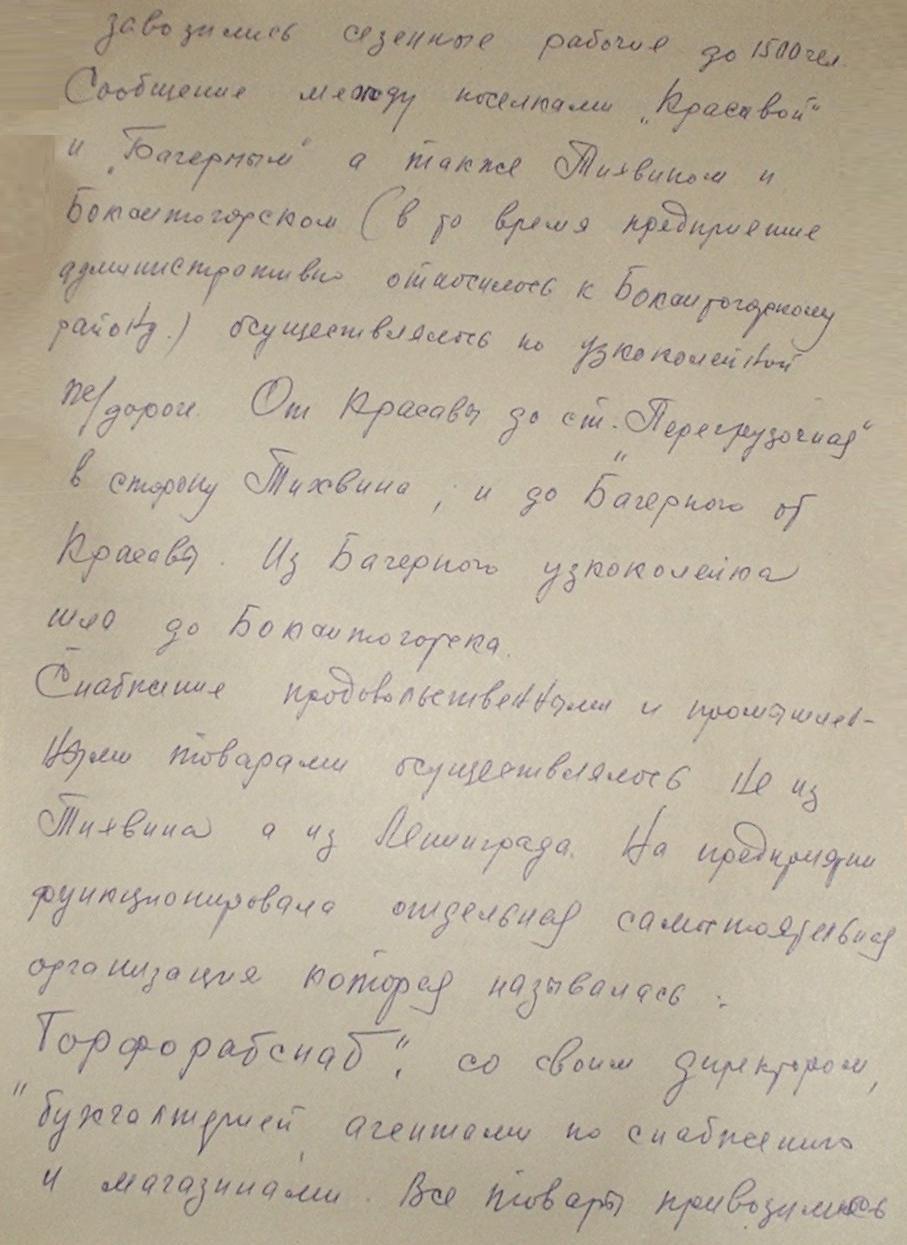 завозились сезенные рабочие до 1500 чел.
Сообщение между поселками „Красавой"
и „Багерным" а также Тихвином и
Бокситогорском (в то время предприятие
административно относилось к Бокситогорскому
району.) осуществлялось по узкоколейной
же/дороге. От Красавы до ст. „Перегрузочная"
в сторону Тихвина, и до Багерного от
Красавы. Из Багерного узкоколейка
шла до Бокситогорска.
Снабжение продовольственными и промышлен-
ными товарами осуществлялось не из
Тихвина а из Ленинграда. На предприятии
функционировала отдельная самостоятельная
организация которая называлась:
„Торфорабснаб", со своим директором,
бухгалтерией, агентами по снабжению
и магазинами. Все товары привозились